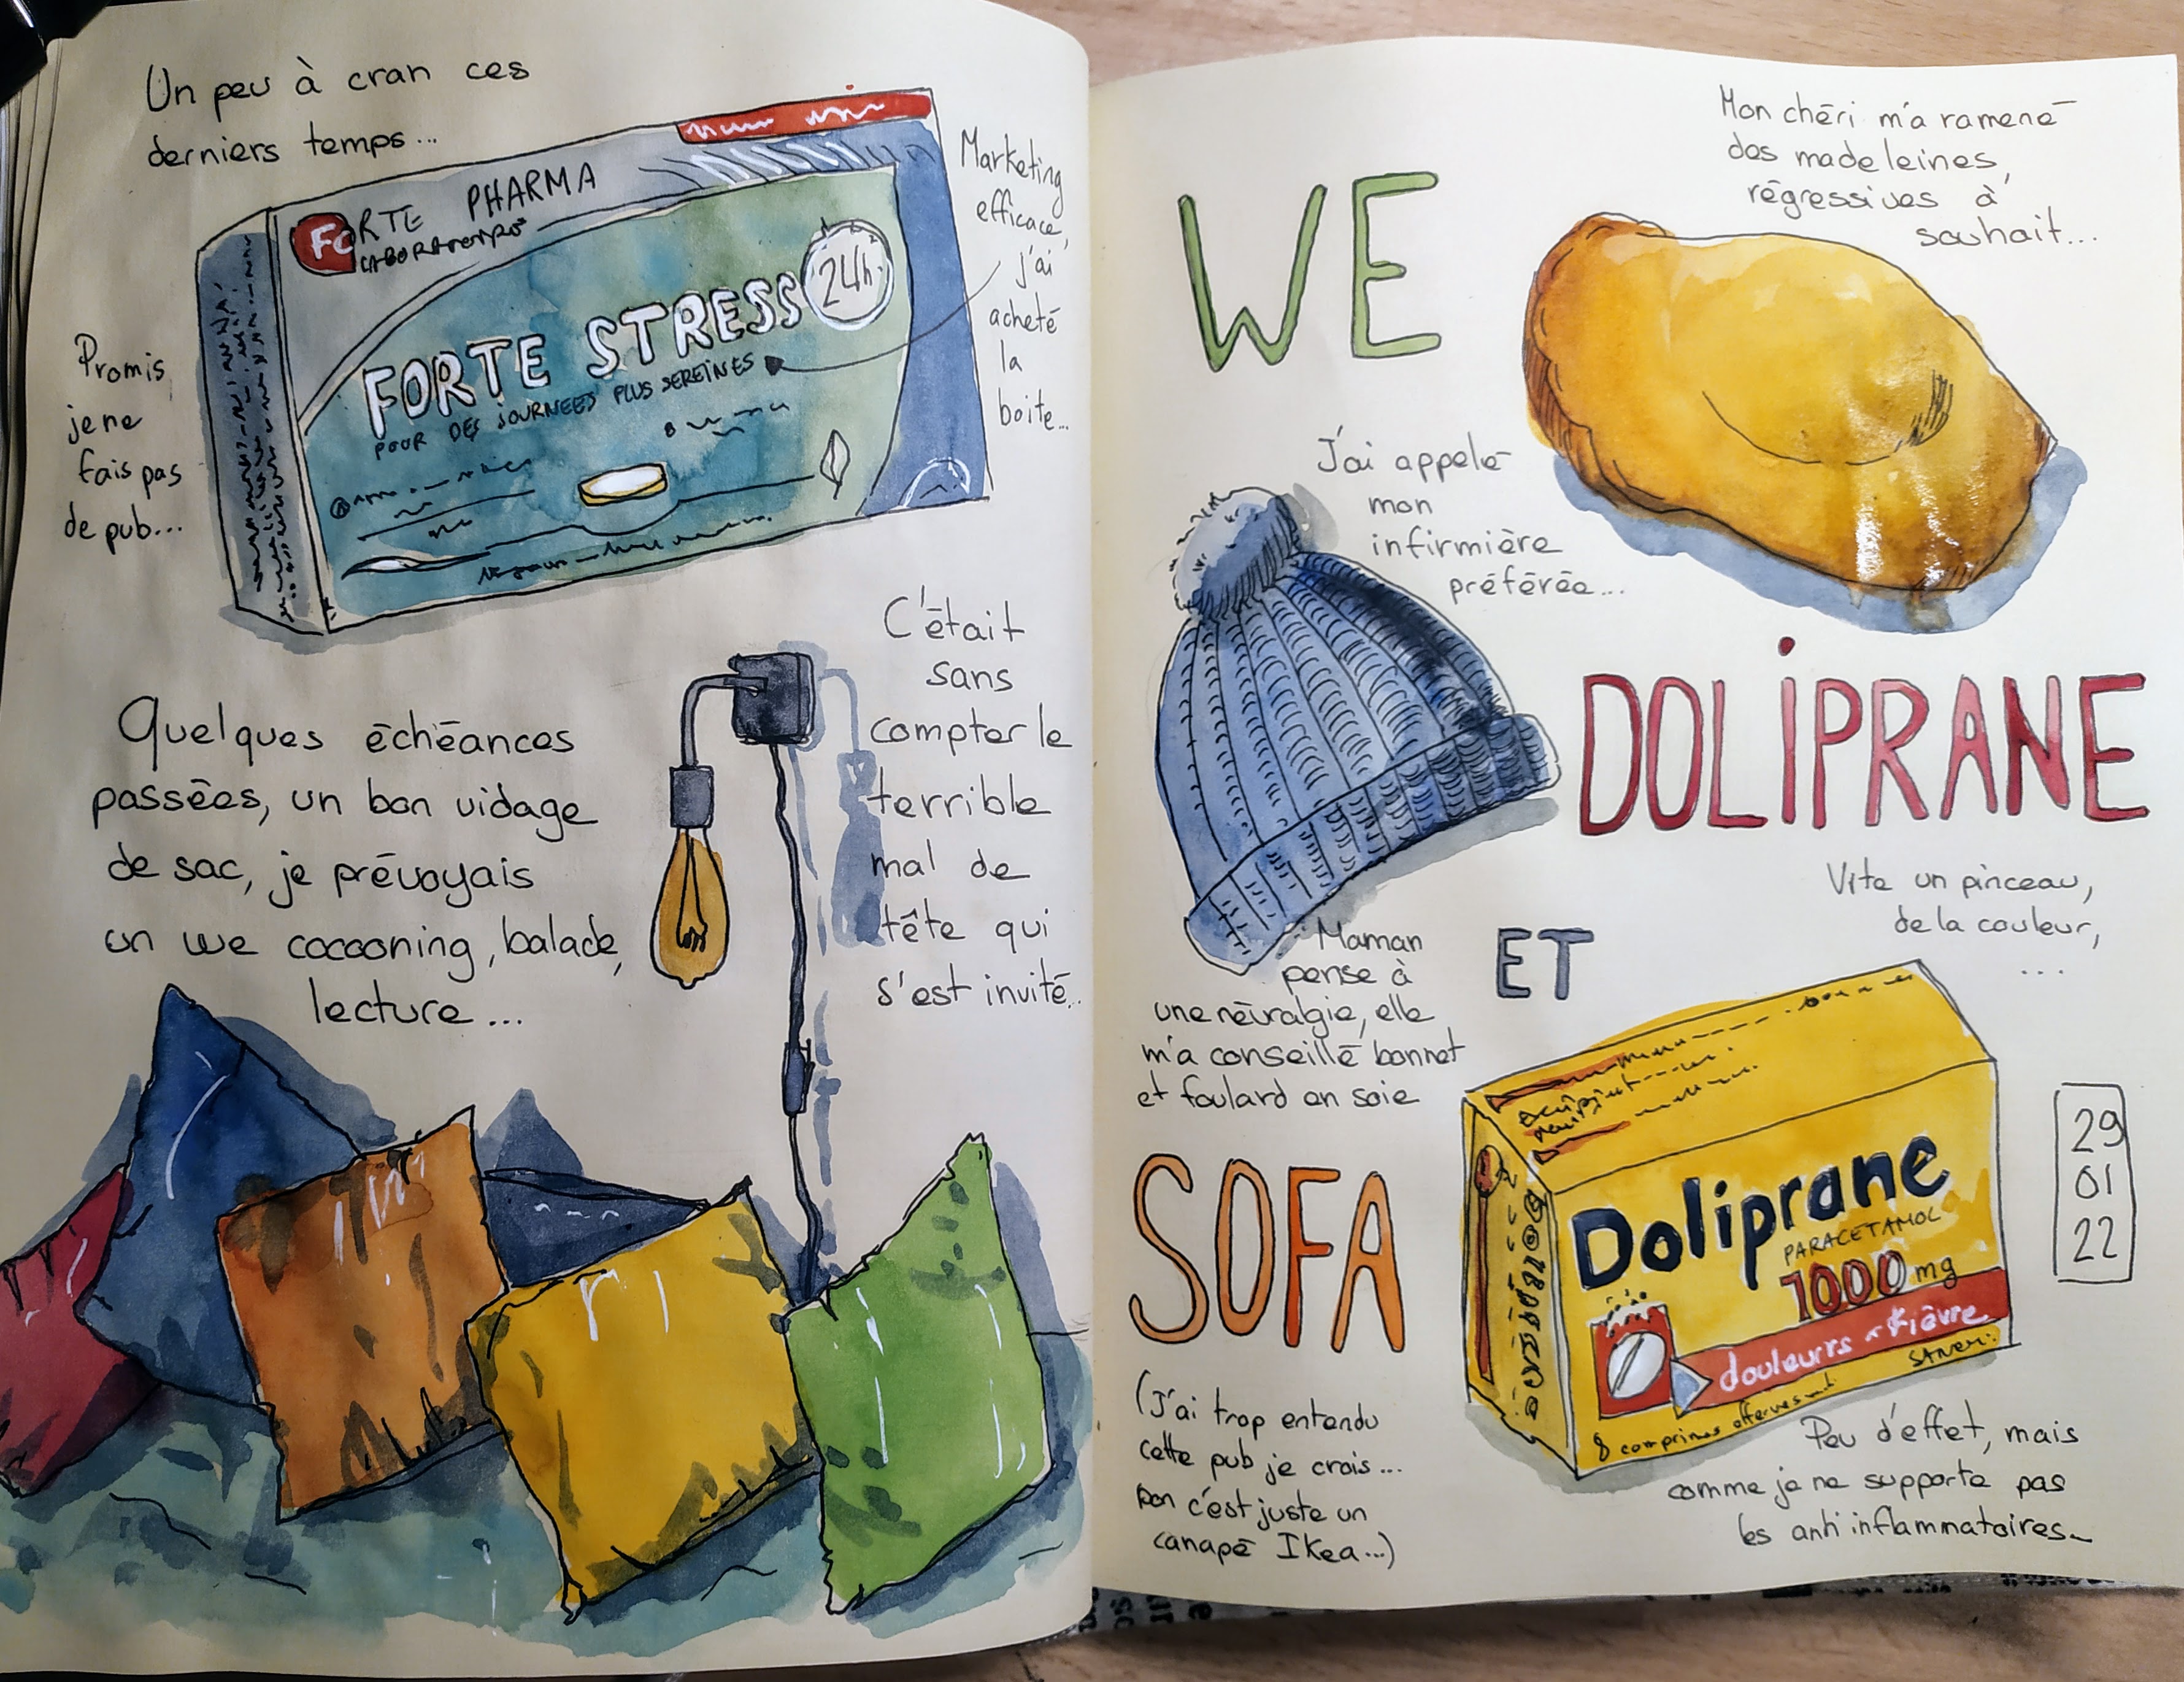 Un peu à cran ces
derniers temps...
FORTE PHARMA
LABORATOIRES
FORTE STRESS
24h
POUR DES JOURNEES PLUS SEREINES
Marketing
efficace,
j'ai
acheté
la
boite...
Promis
je ne
fais pas
de pub...
Quelques échéances
passées, un bon vidage
de sac, je prévoyais
un we cocooning, balade,
lecture...
C'était
sans
compter le
terrible
mal de
tête qui
s'est invité..
WE
Mon chéri m'a ramené
des madeleines,
régressives à
souhait...
J'ai appelé
mon
infirmière
préférée...
DOLIPRANE
Vite un pinceau,
de la couleur,
...
Maman
pense à
une névralgie, elle
m'a conseillé bonnet
et foulard en soie
ET
SOFA
(J'ai trop entendu
cette pub je crois...
bon c'est juste un
canapé IKea...)
Doliprane
PARACETAMOL
1000 mg
douleurs fièvre
8 comprimes
Peu d'effet, mais
comme je ne supporte pas
les anti inflammatoires
29
01
22